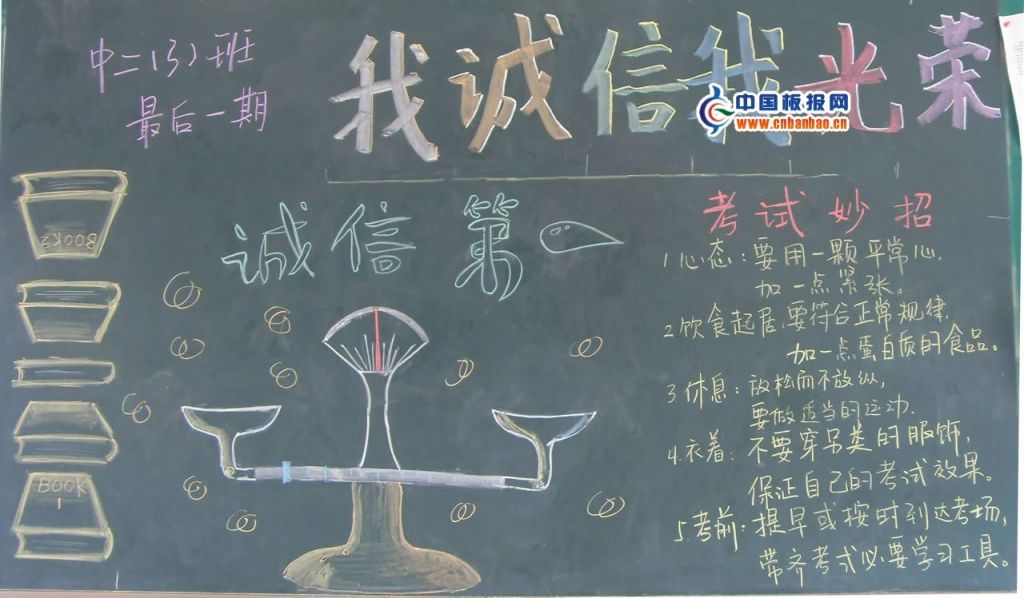 中二(3)班
最后一期
我诚信我光荣
中国板报网
www.cnbanbao.cn
诚信第一
考试妙招
1心态：要用一颗平常心,
加一点紧张。
2饮食起居:要符合正常规律,
加一点蛋白质的食品。
3休息：放松而不放纵,
要做适当的运动.
4.衣着：不要穿另类的服饰,
保证自己的考试效果。
5.考前：提早或按时到达考场,
带齐考式必要学习工具。
BOOK2
BOOK
1